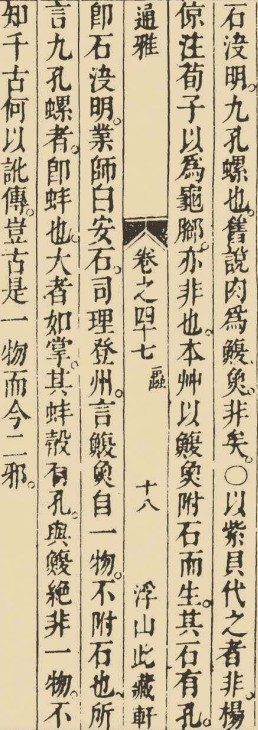 石決明九孔螺也。舊說肉爲鰒魚。非矣。〇以紫貝代之者非。楊
倞注荀子以爲龜腳。亦非也。本艸以鰒魚附石而生。其石有孔。
通雅 卷之四十七 十八 浮山此藏軒
卽石決明。業師白安石。司理登州。言鰒魚自一物。不附石也。所
言九孔螺者。卽蚌也。大者如掌。其蚌殼有孔。與鰒絕非一物。不
知千古何以訛傳。豈古是一物而今二邪。